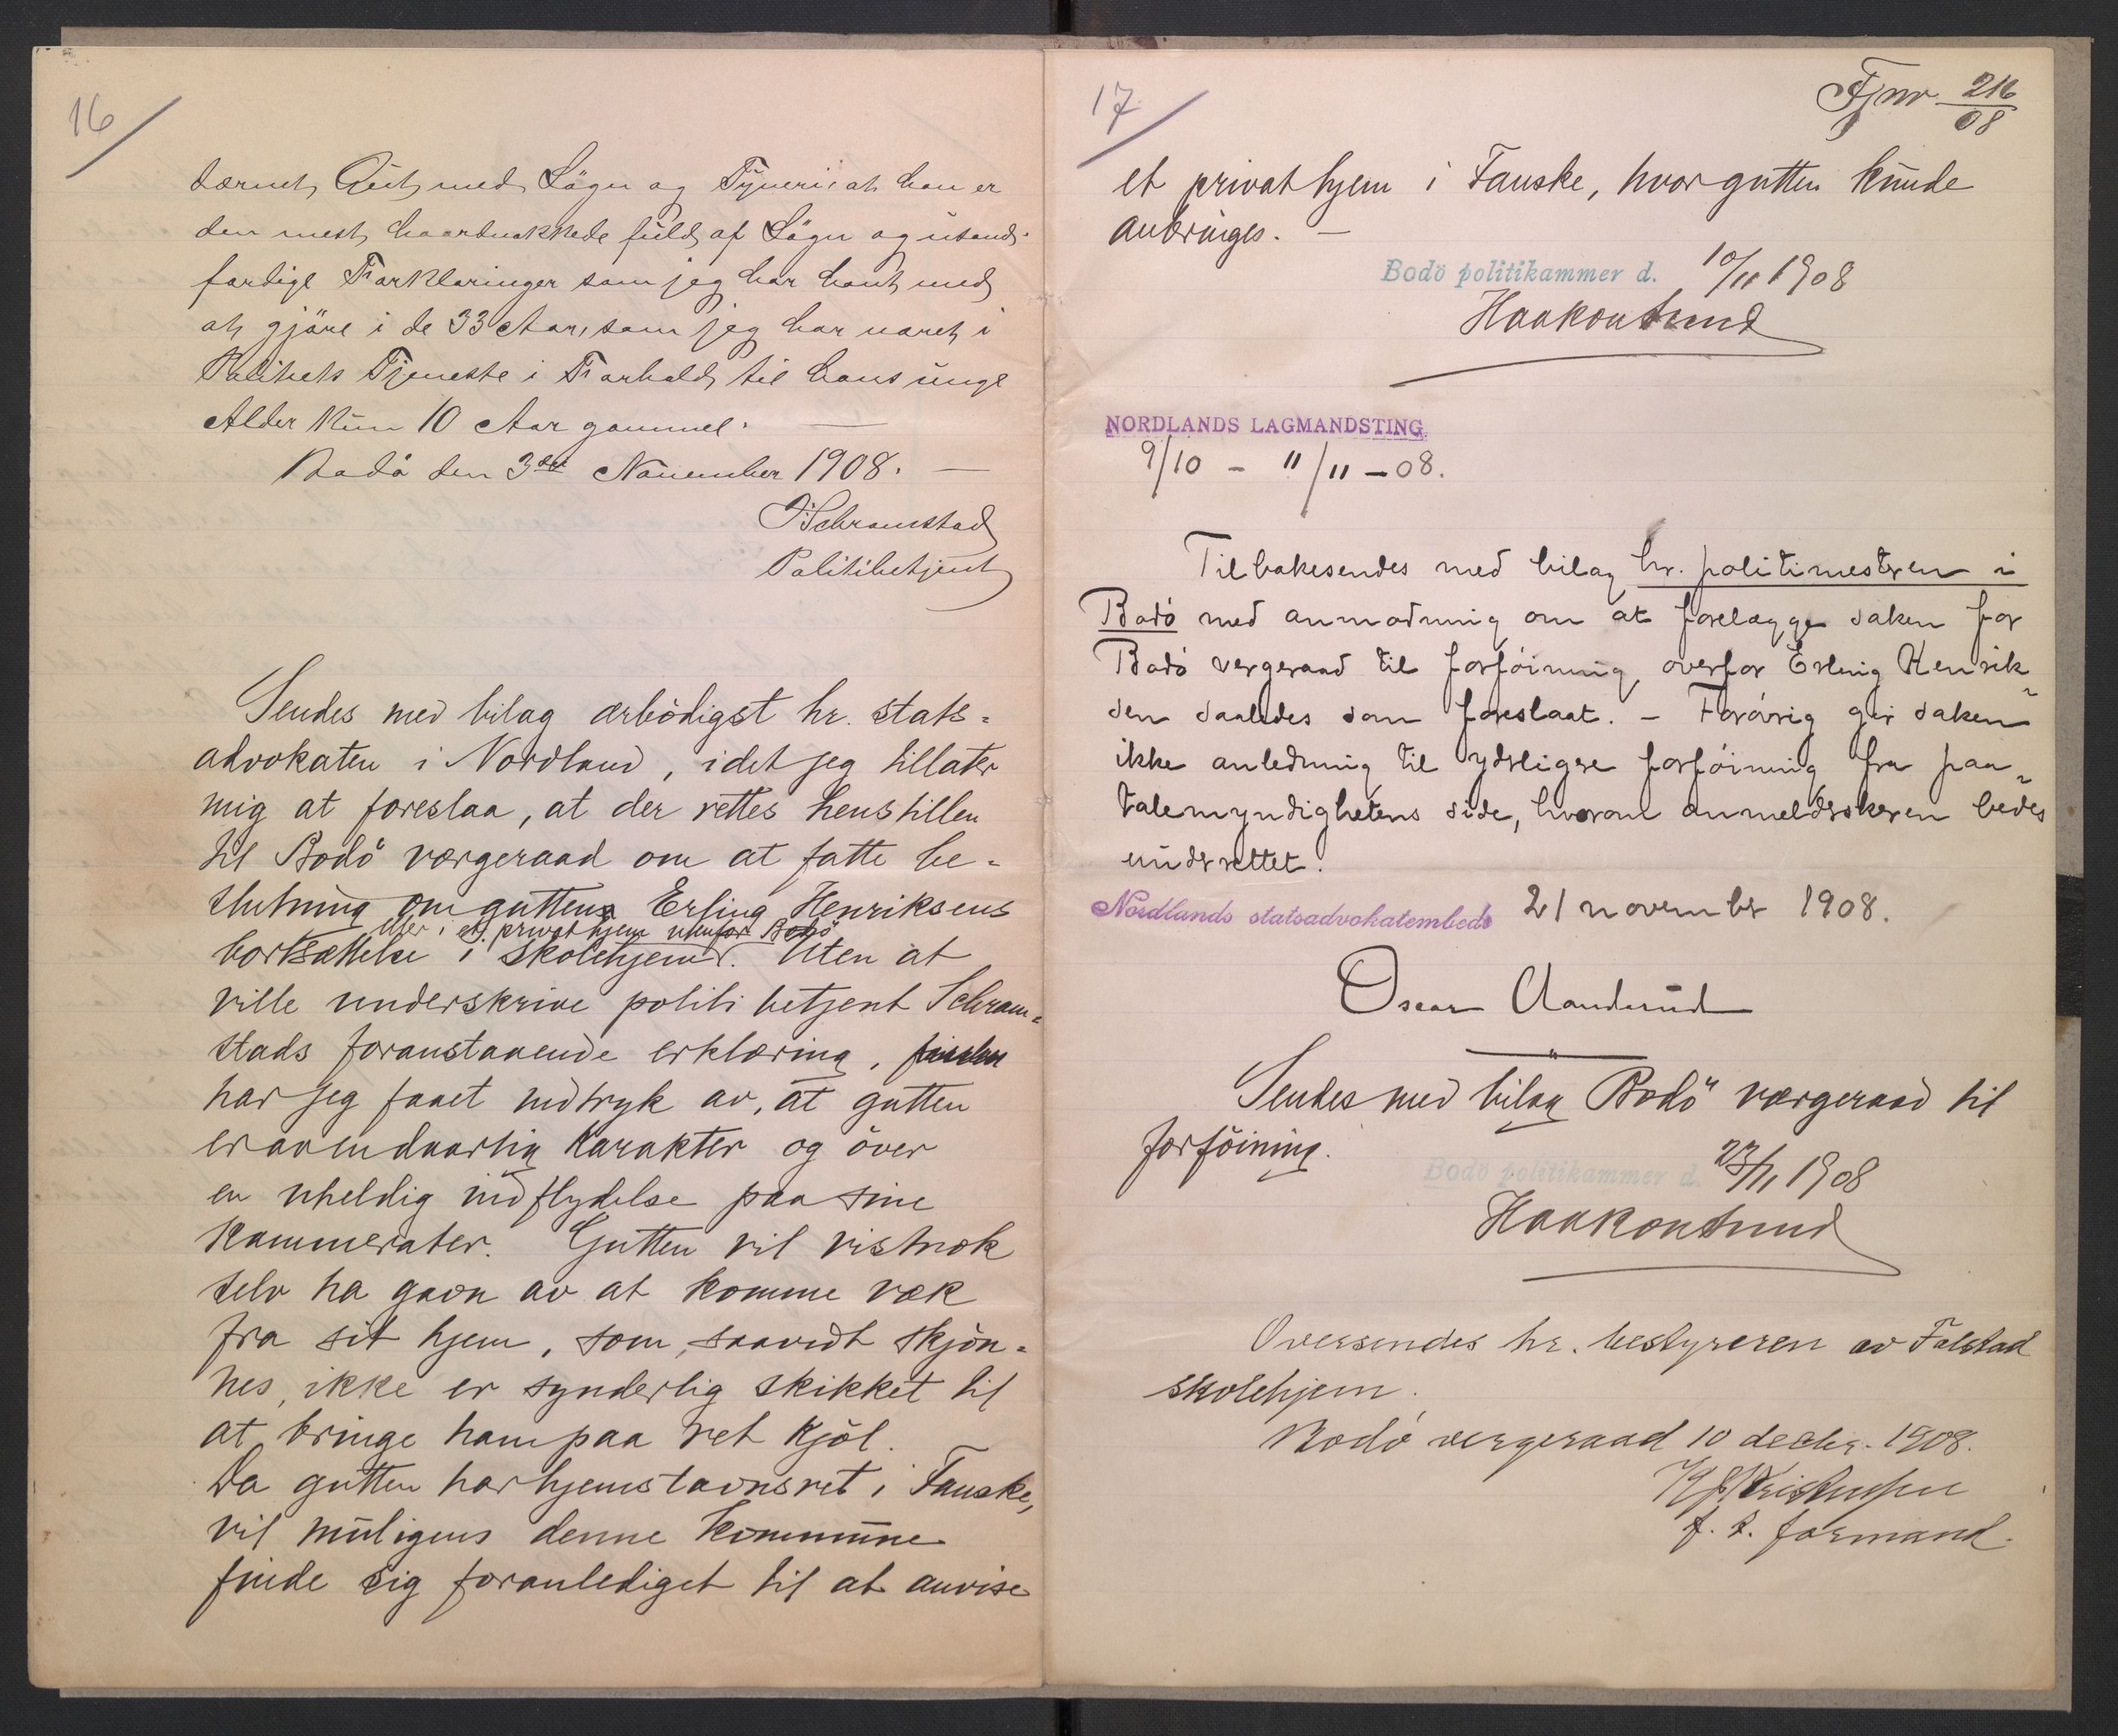 16
lærnet Gut med Løgn og Tyveri, at han er
den mest haardnakkede fuld af Løgn og usand-
færdige Forklaringer som jeg har havt med
at gjøre i de 33 Aar, som jeg har været i
Politiets Tjeneste i Forhold til hans unge
Alder kun 10 Aar gammel. —
Bodø den 3die November 1908. —
Schramstad
Politibetjent
Sendes med bilag ærbödigst hr. stats=
advokaten i Nordland, idet jeg tillater
mig at foreslaa, at der rettes henstillen
til Bodö værgeraad om at fatte be=
slutning om guttens Erling Henriksens
eller i et privat hjem utenfor Bodö
bortsættelse i skolehjem. Uten at
ville underskrive politibetjent Schram=
stads foranstaaende erklæring,
har jeg faaet indtryk av, at gutten
er av en daarlig karakter og över
en uheldig indflydelse paa sine
kammerater. Gutten vil vistnok
selv ha gavn av at komme væk
fra sit hjem, som, saavidt skjön=
nes, ikke er synderlig skikket til
at bringe ham paa ret kjöl.
Da gutten har hjemstavnsret i Fauske,
vil muligens denne kommune
finde sig foranlediget til at anvise
17
Fjnr 216/08
et privat hjem i Fauske, hvor gutten kunde
anbringes. —
Bodö politikammer d. 10/11 1908
Haakon Sund
NORDLANDS LAGMANDSTING
9/10 – 11/11 – 08.
Tilbakesendes med bilag hr. politimesteren i
Bodö med anmodning om at forelægge saken for
Bodö vergeraad til forföining overfor Erling Henrik-
sen saaledes som foreslaat. – Forövrig gir saken
ikke anledning til yderligere forföining fra paa-
talemyndighetens side, hvorom anmeldersken bedes
underrettet.
Nordlands statsadvokatembede 21 november 1908.
Oscar Aanderud
Sendes med bilag Bodö værgeraad til
forföining.
Bodö politikammer d. 23/11 1908
Haakon Sund
Oversendes hr. bestyreren av Falstad
skolehjem.
Bodö vergeraad 10 decbr. 1908.
Kristensen
f. t. formand.